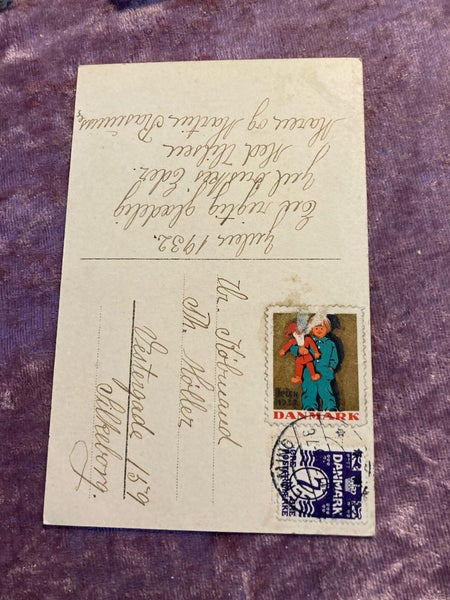 Julen 1932.
En rigtig glædelig
Jul ønskes Eder.
Med Hilsen
Maren og Martin Rasmussen
Hr. Købmand
Th. Möller
Vestergade 159
Silkeborg.
JULEN
1932
DANMARK
DANMARK
7